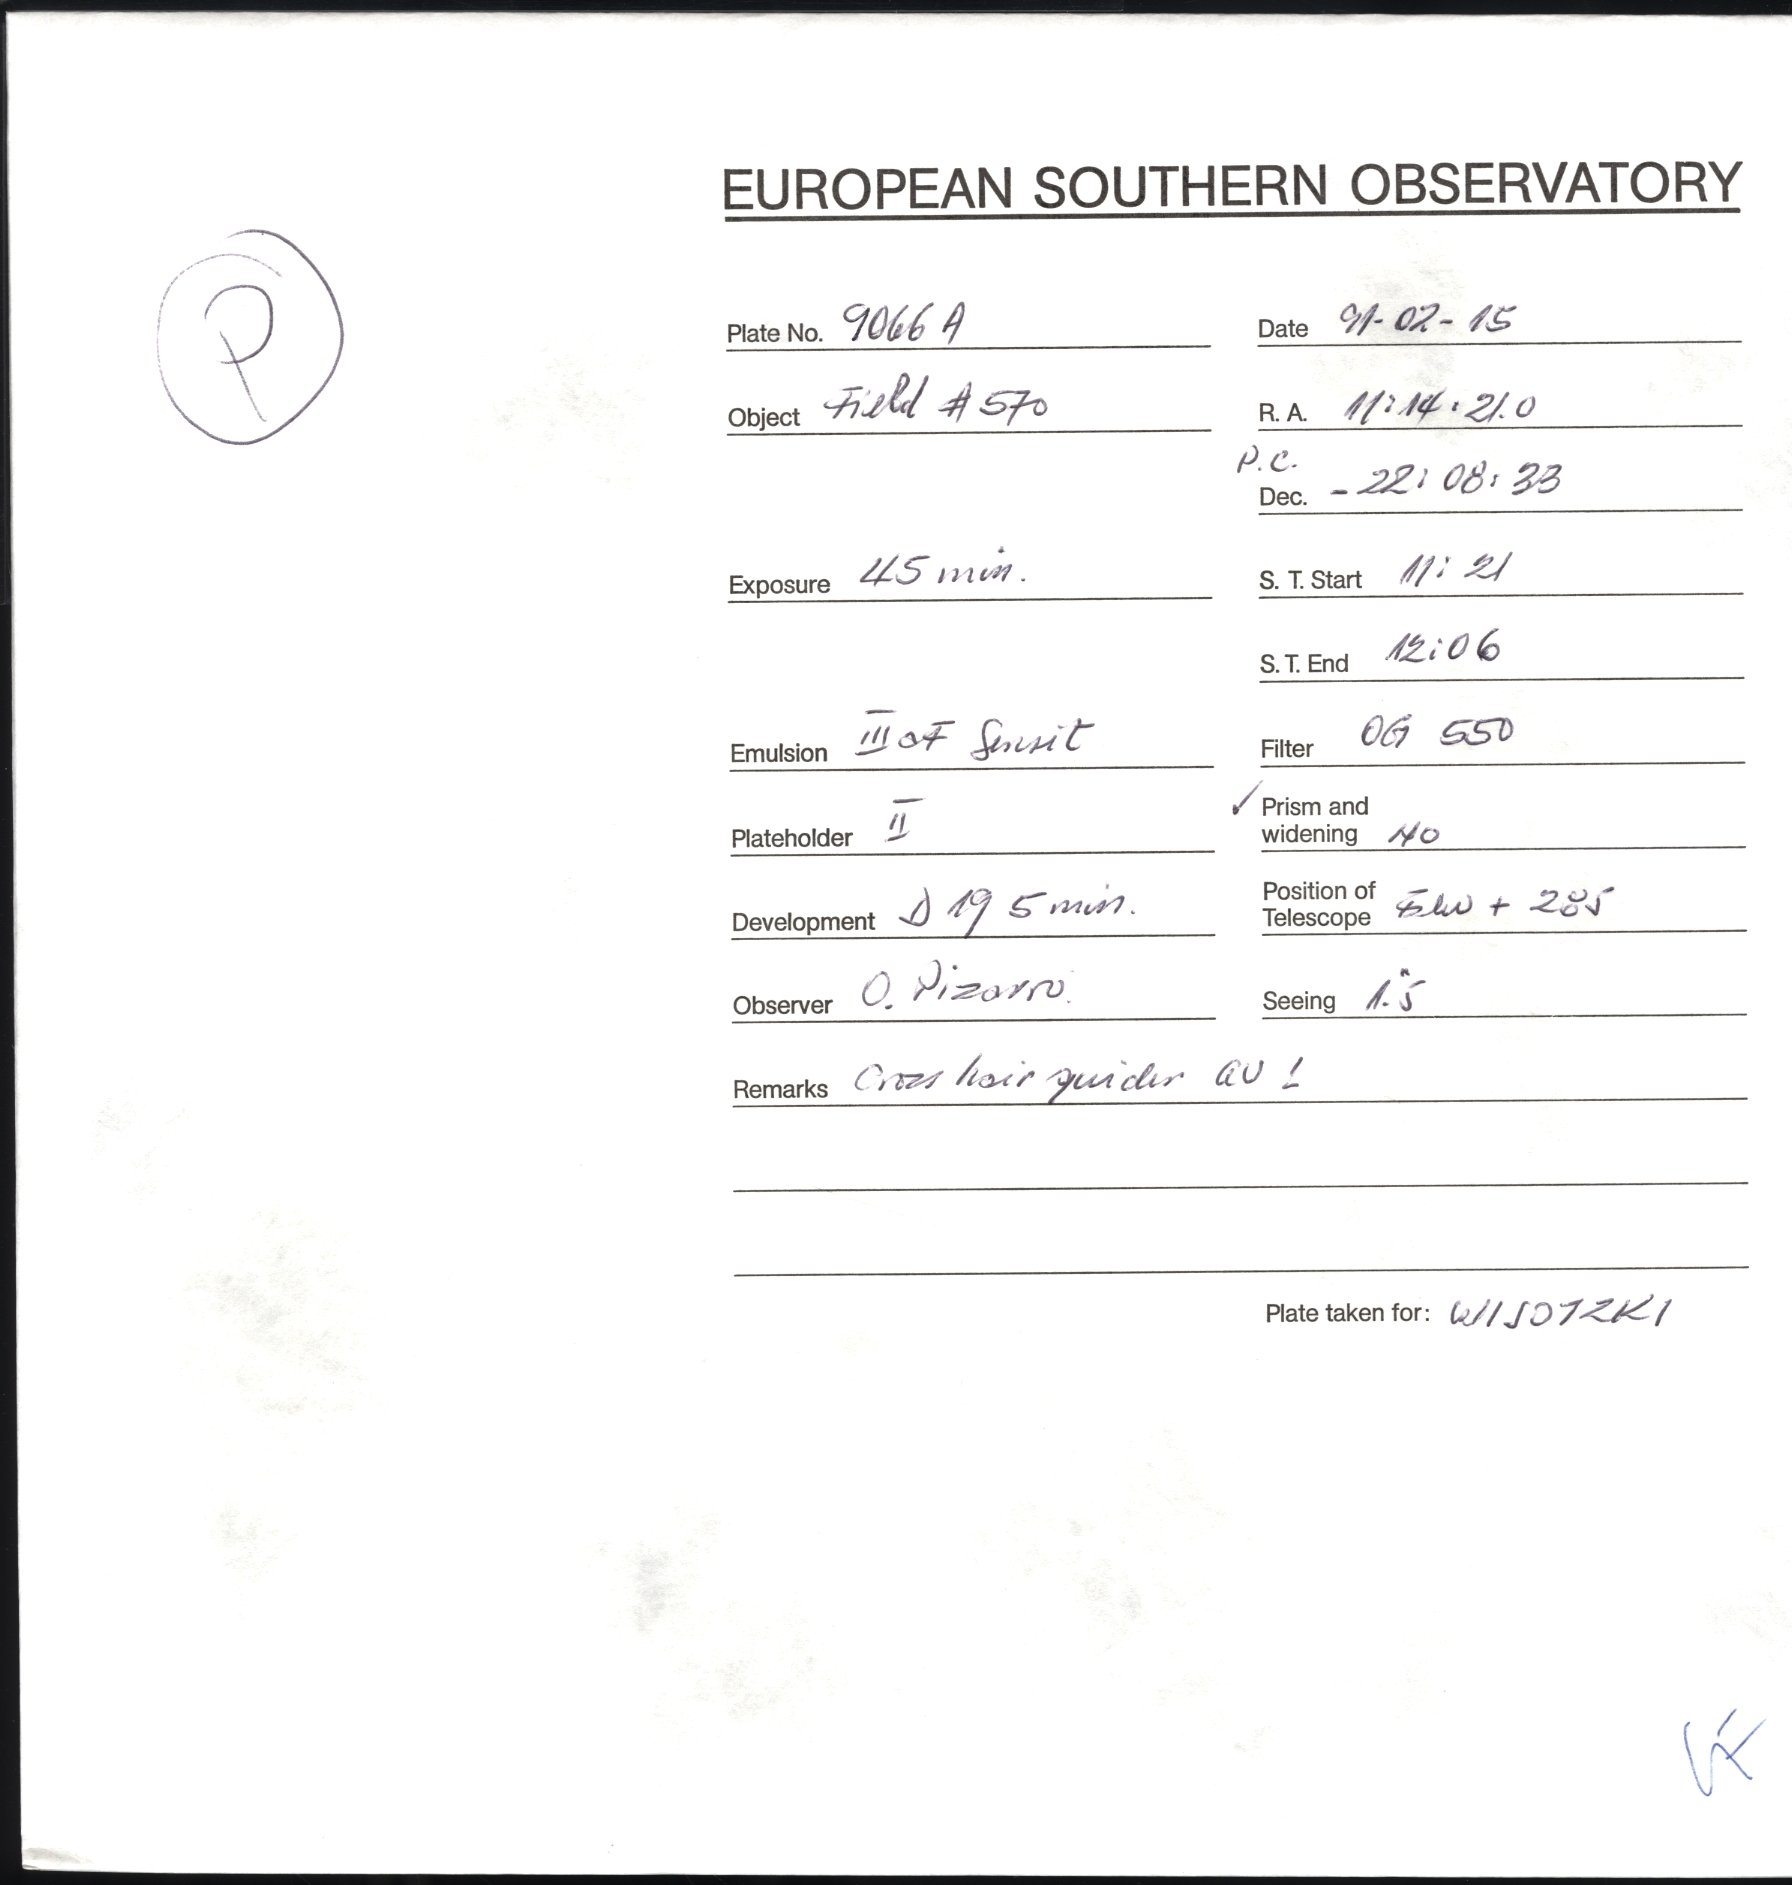 EUROPEAN SOUTHERN OBSERVATORY
P
Plate No. 9066 A
Date 91-02-15
Object Field # 570
R. A. 11:14:21.0
P.C.
Dec. -22:08:33
Exposure 45 min.
S. T. Start 11:21
S. T. End 12:06
Emulsion III aF Sensit
Filter OG 550
Plateholder II
✓ Prism and
widening NO
Development D 19 5 min.
Position of
Telescope + 285
Observer O. Pizarro.
Seeing 1."5
Remarks Cross hair guider
Plate taken for: WISOTZKI